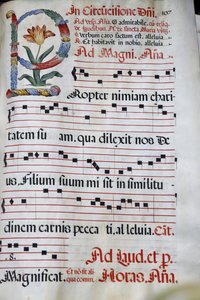 In Circũcisione Dñi.
107
Ad Vesp. Aña. O admirabile,
Aña.
verbum caro factum est, alleluia
Et habitavit in nobis, alleluia
Ad Magni. Aña.
PRopter nimiam chari
tatem su am, qua dilexit nos De
us, Filium suum misit in similitu
dinem carnis pecca ti, al leluia. Cãt.
Magnificat.
Ad Laud. et p.
Horas. Aña.